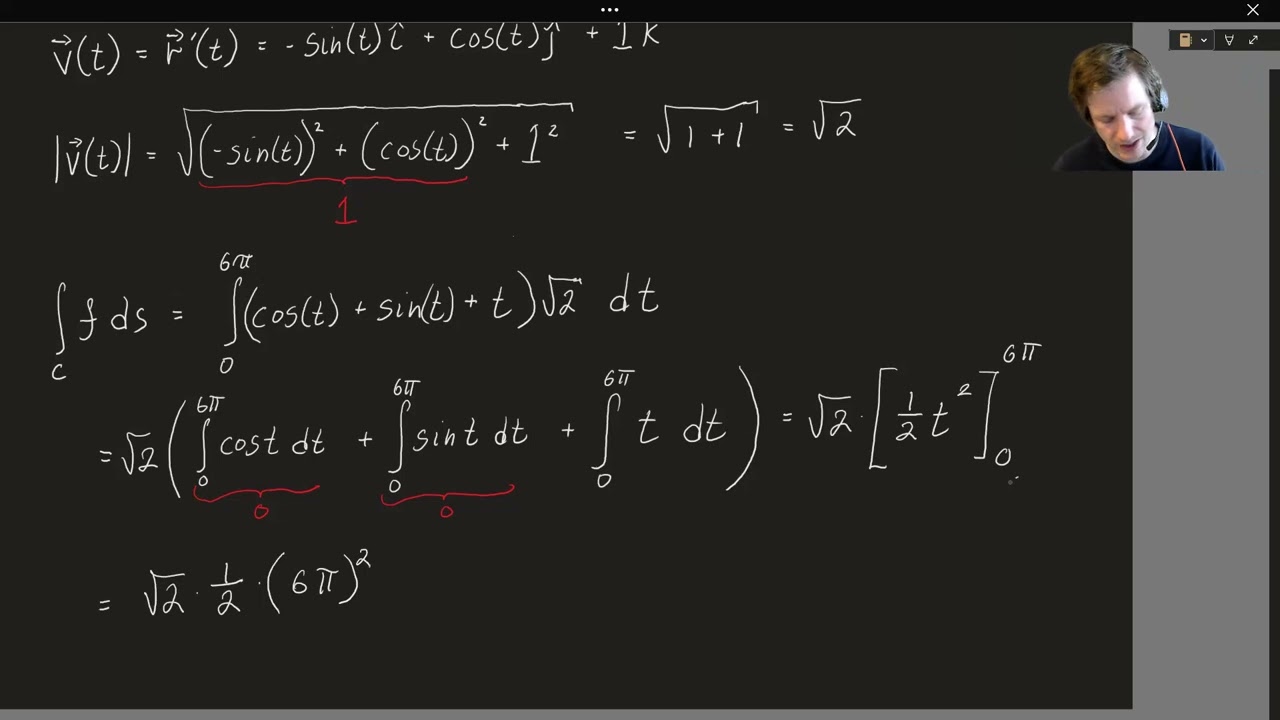 v⃗(t) = r⃗'(t) = -sin(t)î + cos(t)ĵ + 1k
|v⃗(t)| = √((-sin(t))² + (cos(t))² + 1²) = √(1+1) = √2
1
∫_C f ds = ∫_0^{6π} (cos(t) + sin(t) + t)√2 dt
= √2 (∫_0^{6π} cost dt + ∫_0^{6π} sint dt + ∫_0^{6π} t dt) = √2 · [1/2 t²]_0^{6π}
0 0
= √2 · 1/2 · (6π)²